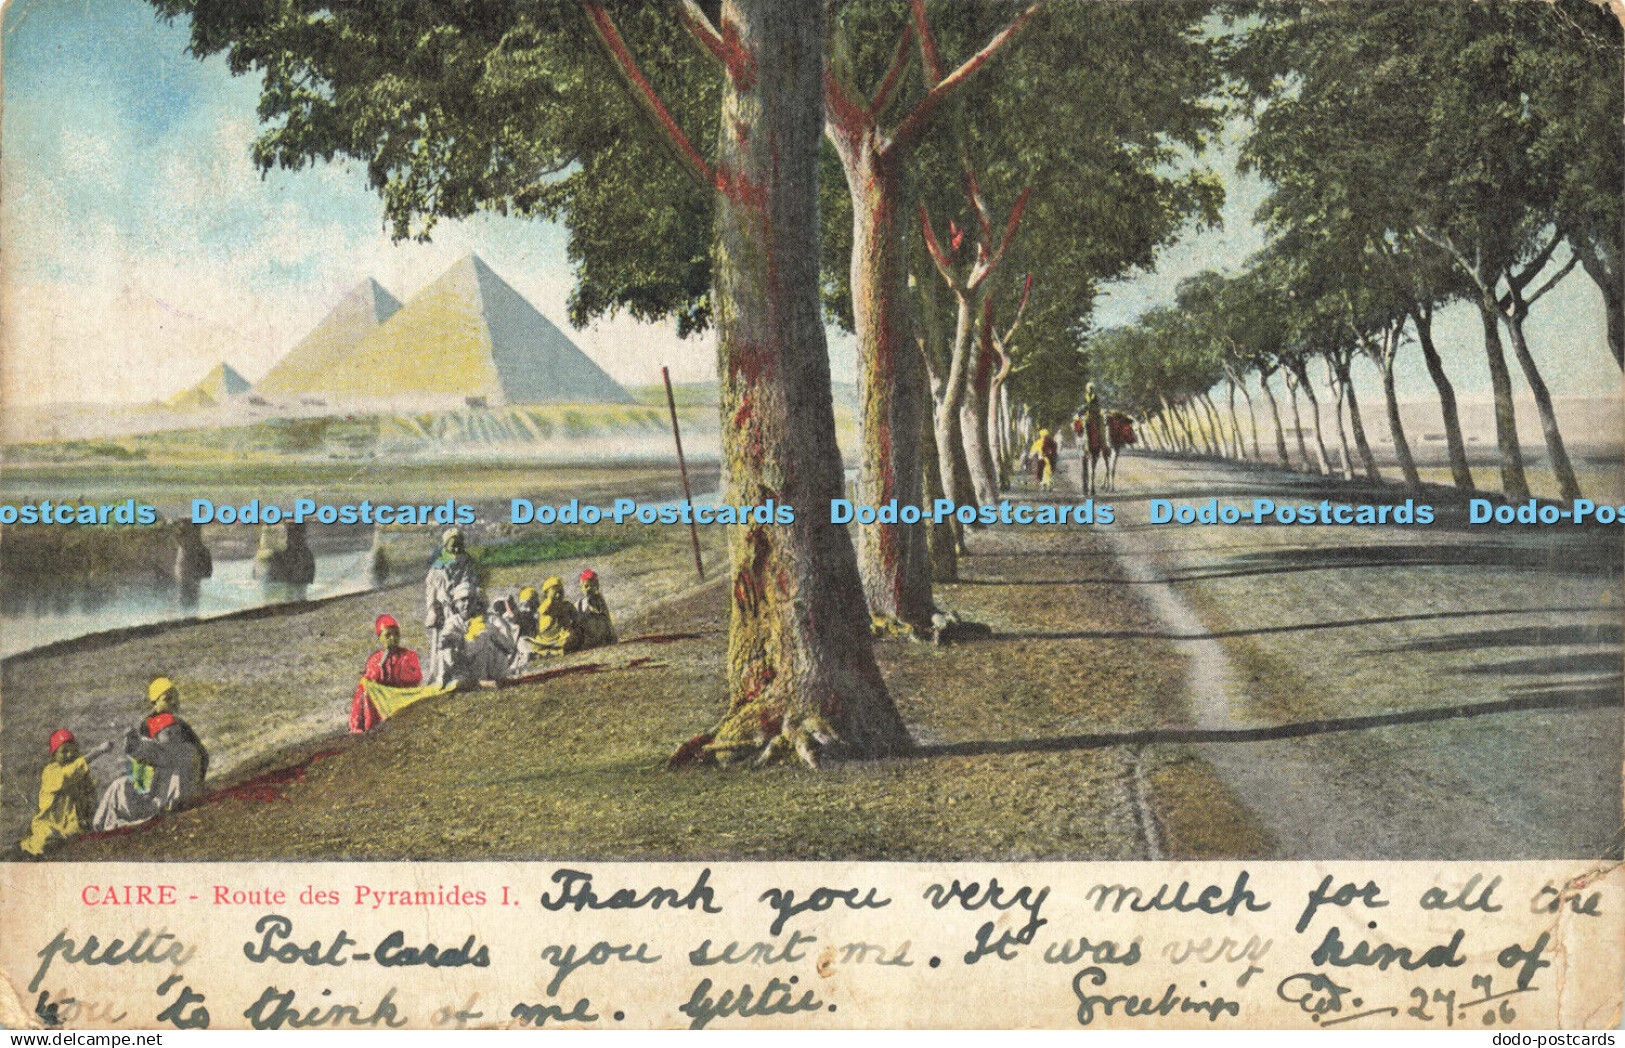 ostcards Dodo-Postcards Dodo-Postcards Dodo-Postcards Dodo-Postcards Dodo-Pos
CAIRE - Route des Pyramides I. Thank you very much for all the
pretty Post-Cards you sent me. It was very kind of
you to think of me. Gertie. Greetings 24
dodo-postcards.com